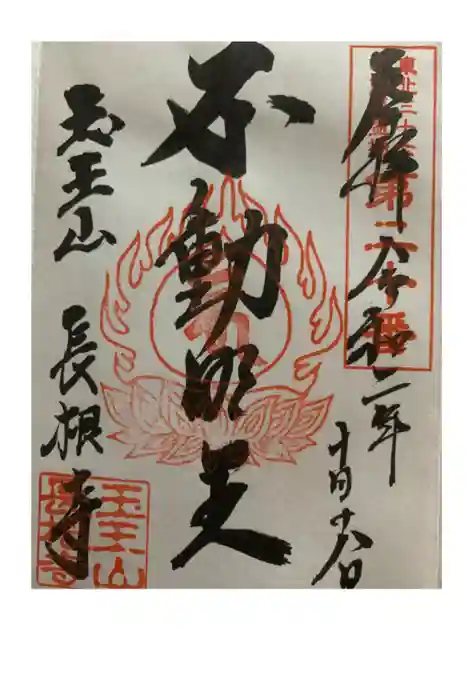 奉拝 令和二年
十月十八日
東北三十六不動尊霊場
第二十番
不動明王
玉王山 長根寺
玉王山
長根寺